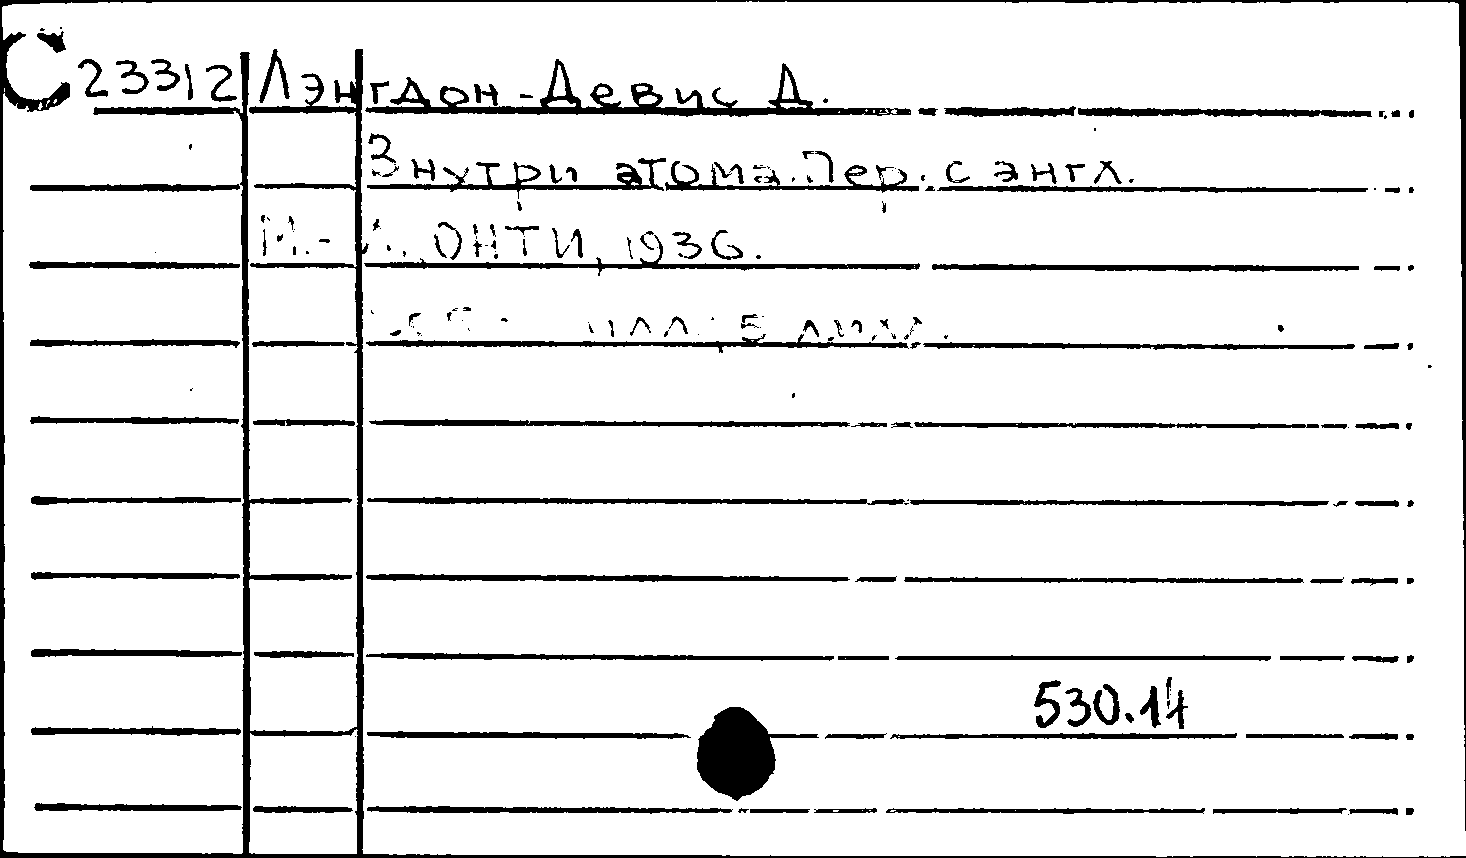 С 23312 Лэнгдон-Девис Д.
Внутри атома. Пер. с англ.
М.-Л., ОНТИ, 1936.
илл., 5 л.илл.
530.14